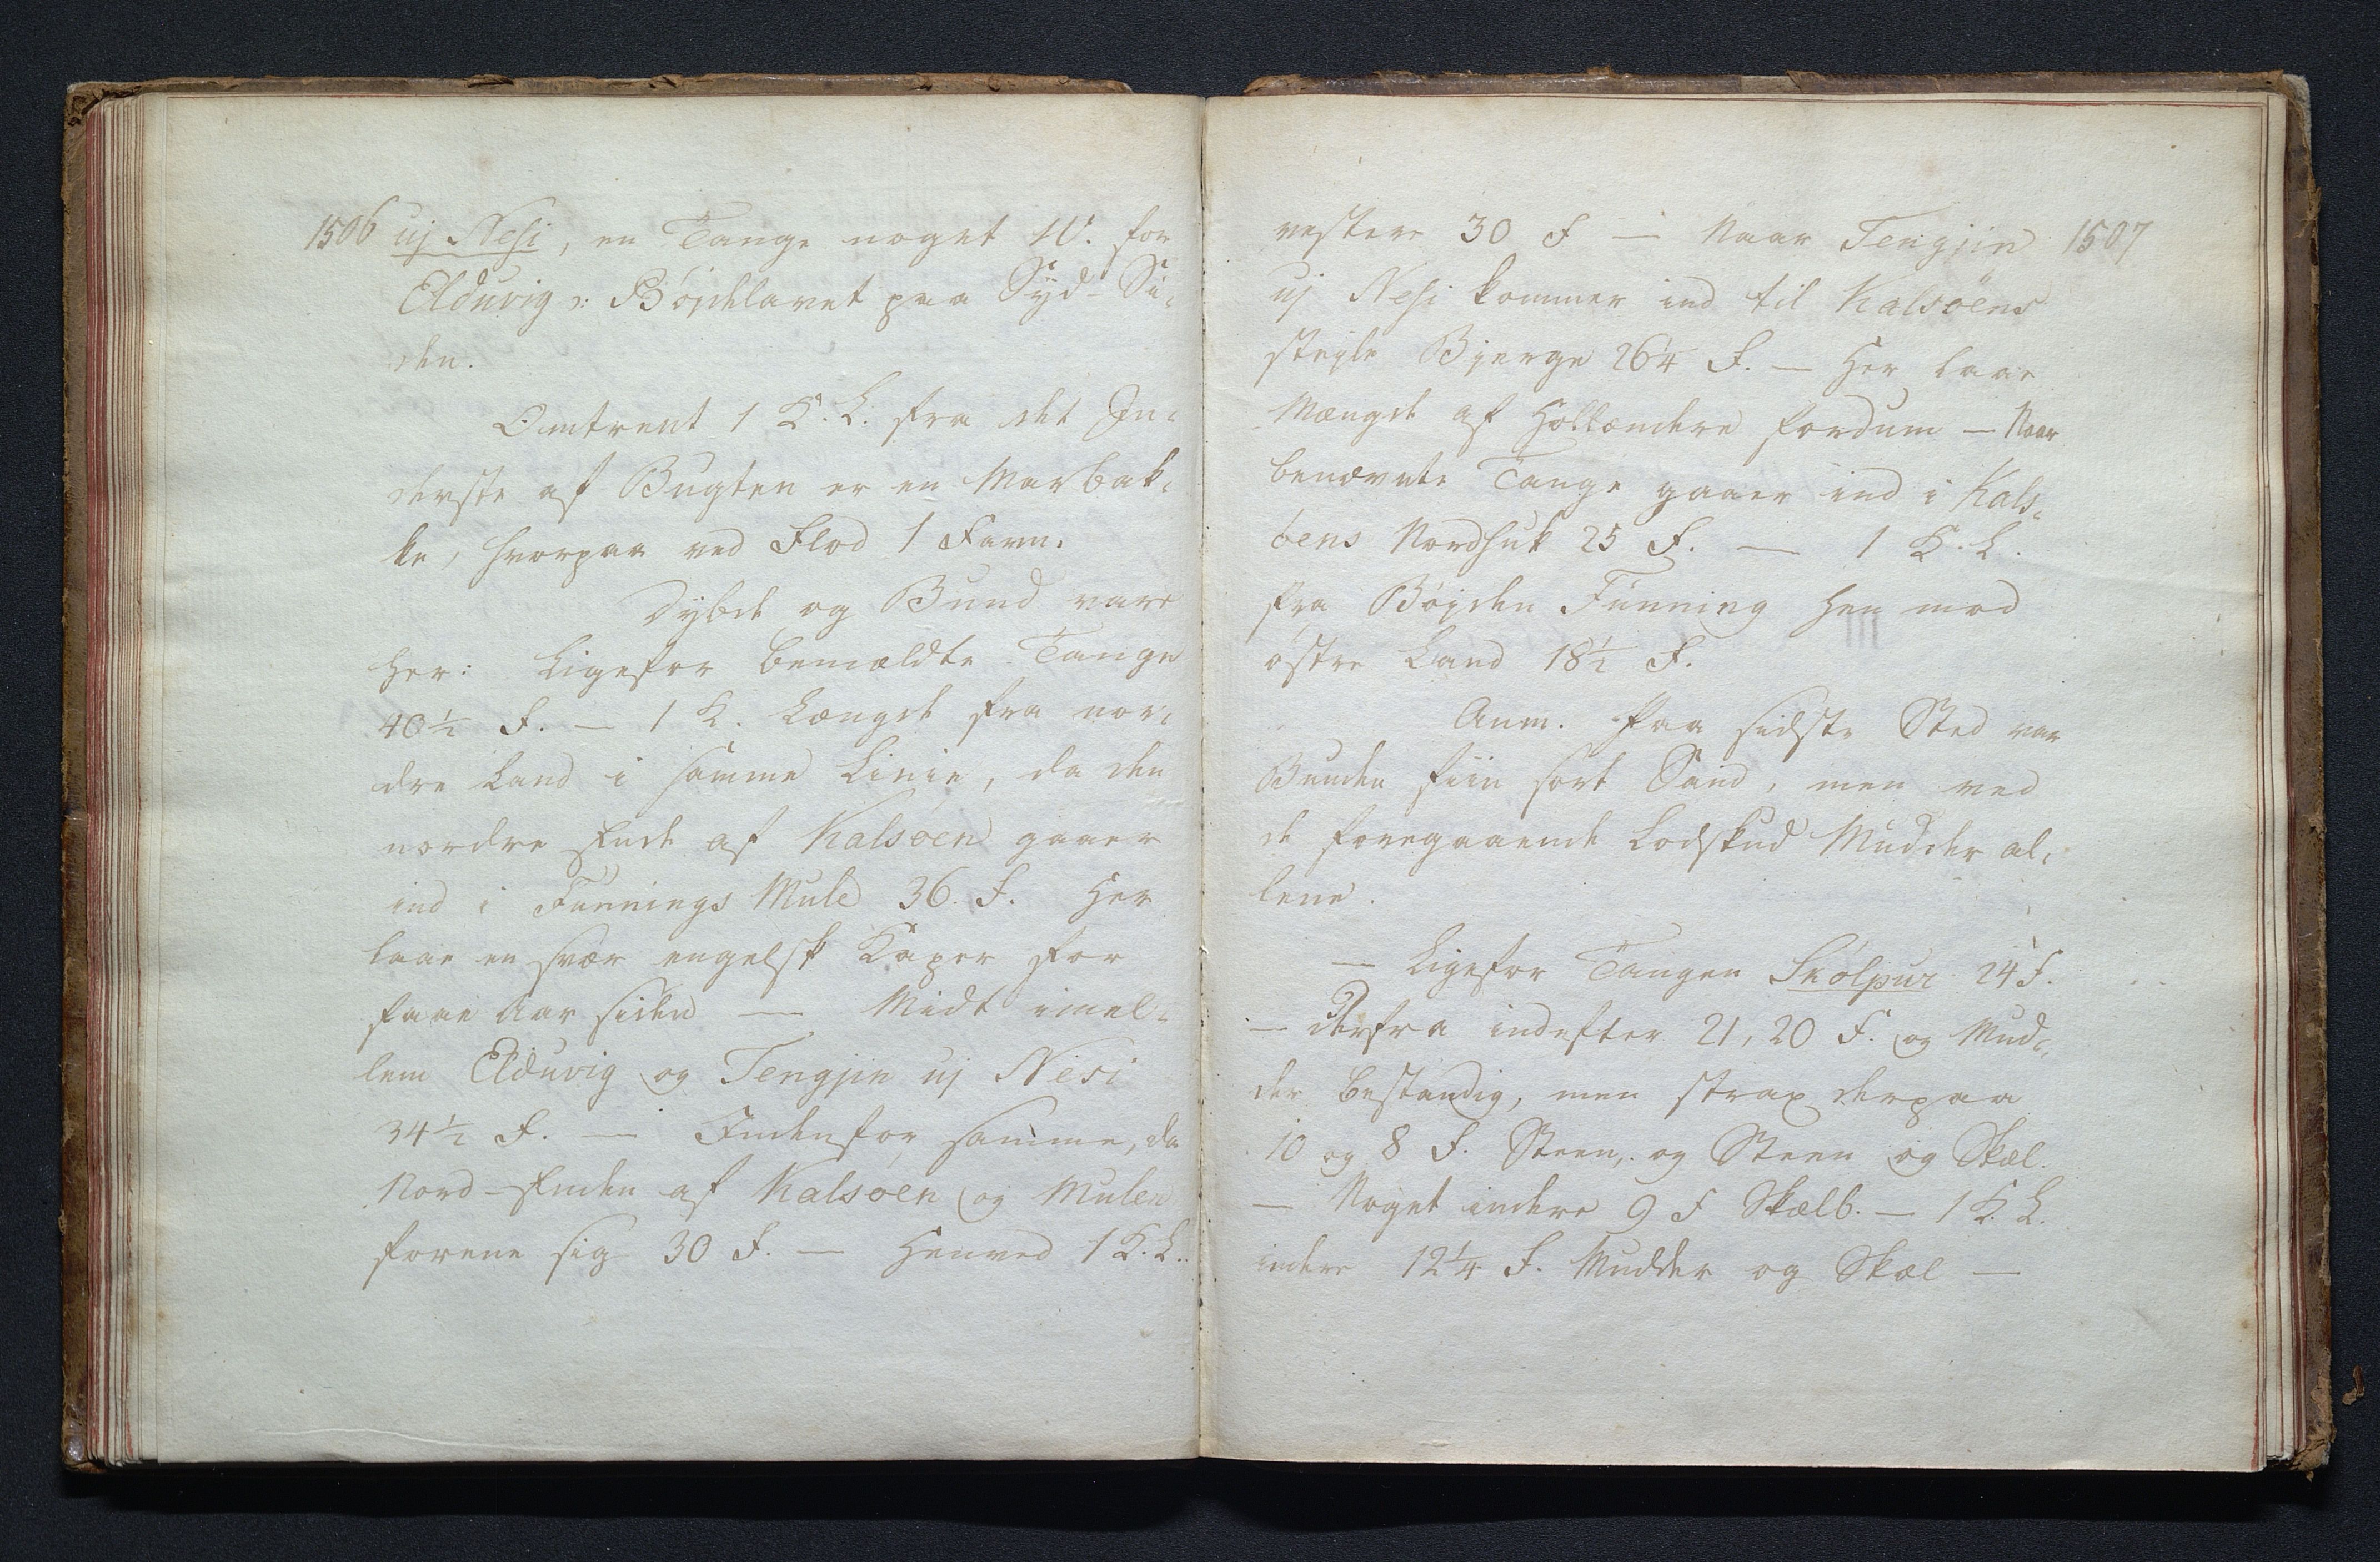 1506 uj Nesi, en Tange noget W. for
Elduvig ɔ: Bøjdelavet paa Syd-Si-
den.
Omtrent 1 K. L. fra det In-
derste af Bugten er en Marbak-
ke, hvorpaa ved Flod 1 Favn.
Dybde og Bund vare
her: Ligefor bemældte Tange
40½ F. — 1 K. Længde fra nor-
dre Land i samme Linie, da den
nordre Ende af Kalsøen gaaer
ind i Funnings Mule 36. F. Her
laae en svær engelsk Kaper for
faae Aar siden — Midt imel-
lem Elduvig og Tengjin uj Nesi
34½ F. — Indenfor samme, da
Nord-Enden af Kalsøen og Mulen
forene sig 30 F. — Henved 1 K. L.
vestere 30 F — Naar Tengjin 1507
uj Nesi kommer ind til Kalsøens
stejle Bjerge 26¼ F. — Her laae
Mængde af Hollændere fordum — Naar
benævnte Tange gaaer ind i Kals-
øens Nordhuk 25 F. — 1 K. L.
fra Bøjden Funning hen mod
østre Land 18½ F.
Anm. Paa sidste Sted var
Bunden fiin sort Sand, men ved
de foregaaende Lodskud Mudder al-
lene.
— Ligefor Tangen Skolpur 24 F.
— Derfra indefter 21, 20 F. og Mud-
der bestandig, men strax derpaa
10 og 8 F. Steen, og Steen og Skæl.
— Noget indere 9 F Skælb. — 1 K. L.
indere 12¼ F. Mudder og Skæl —